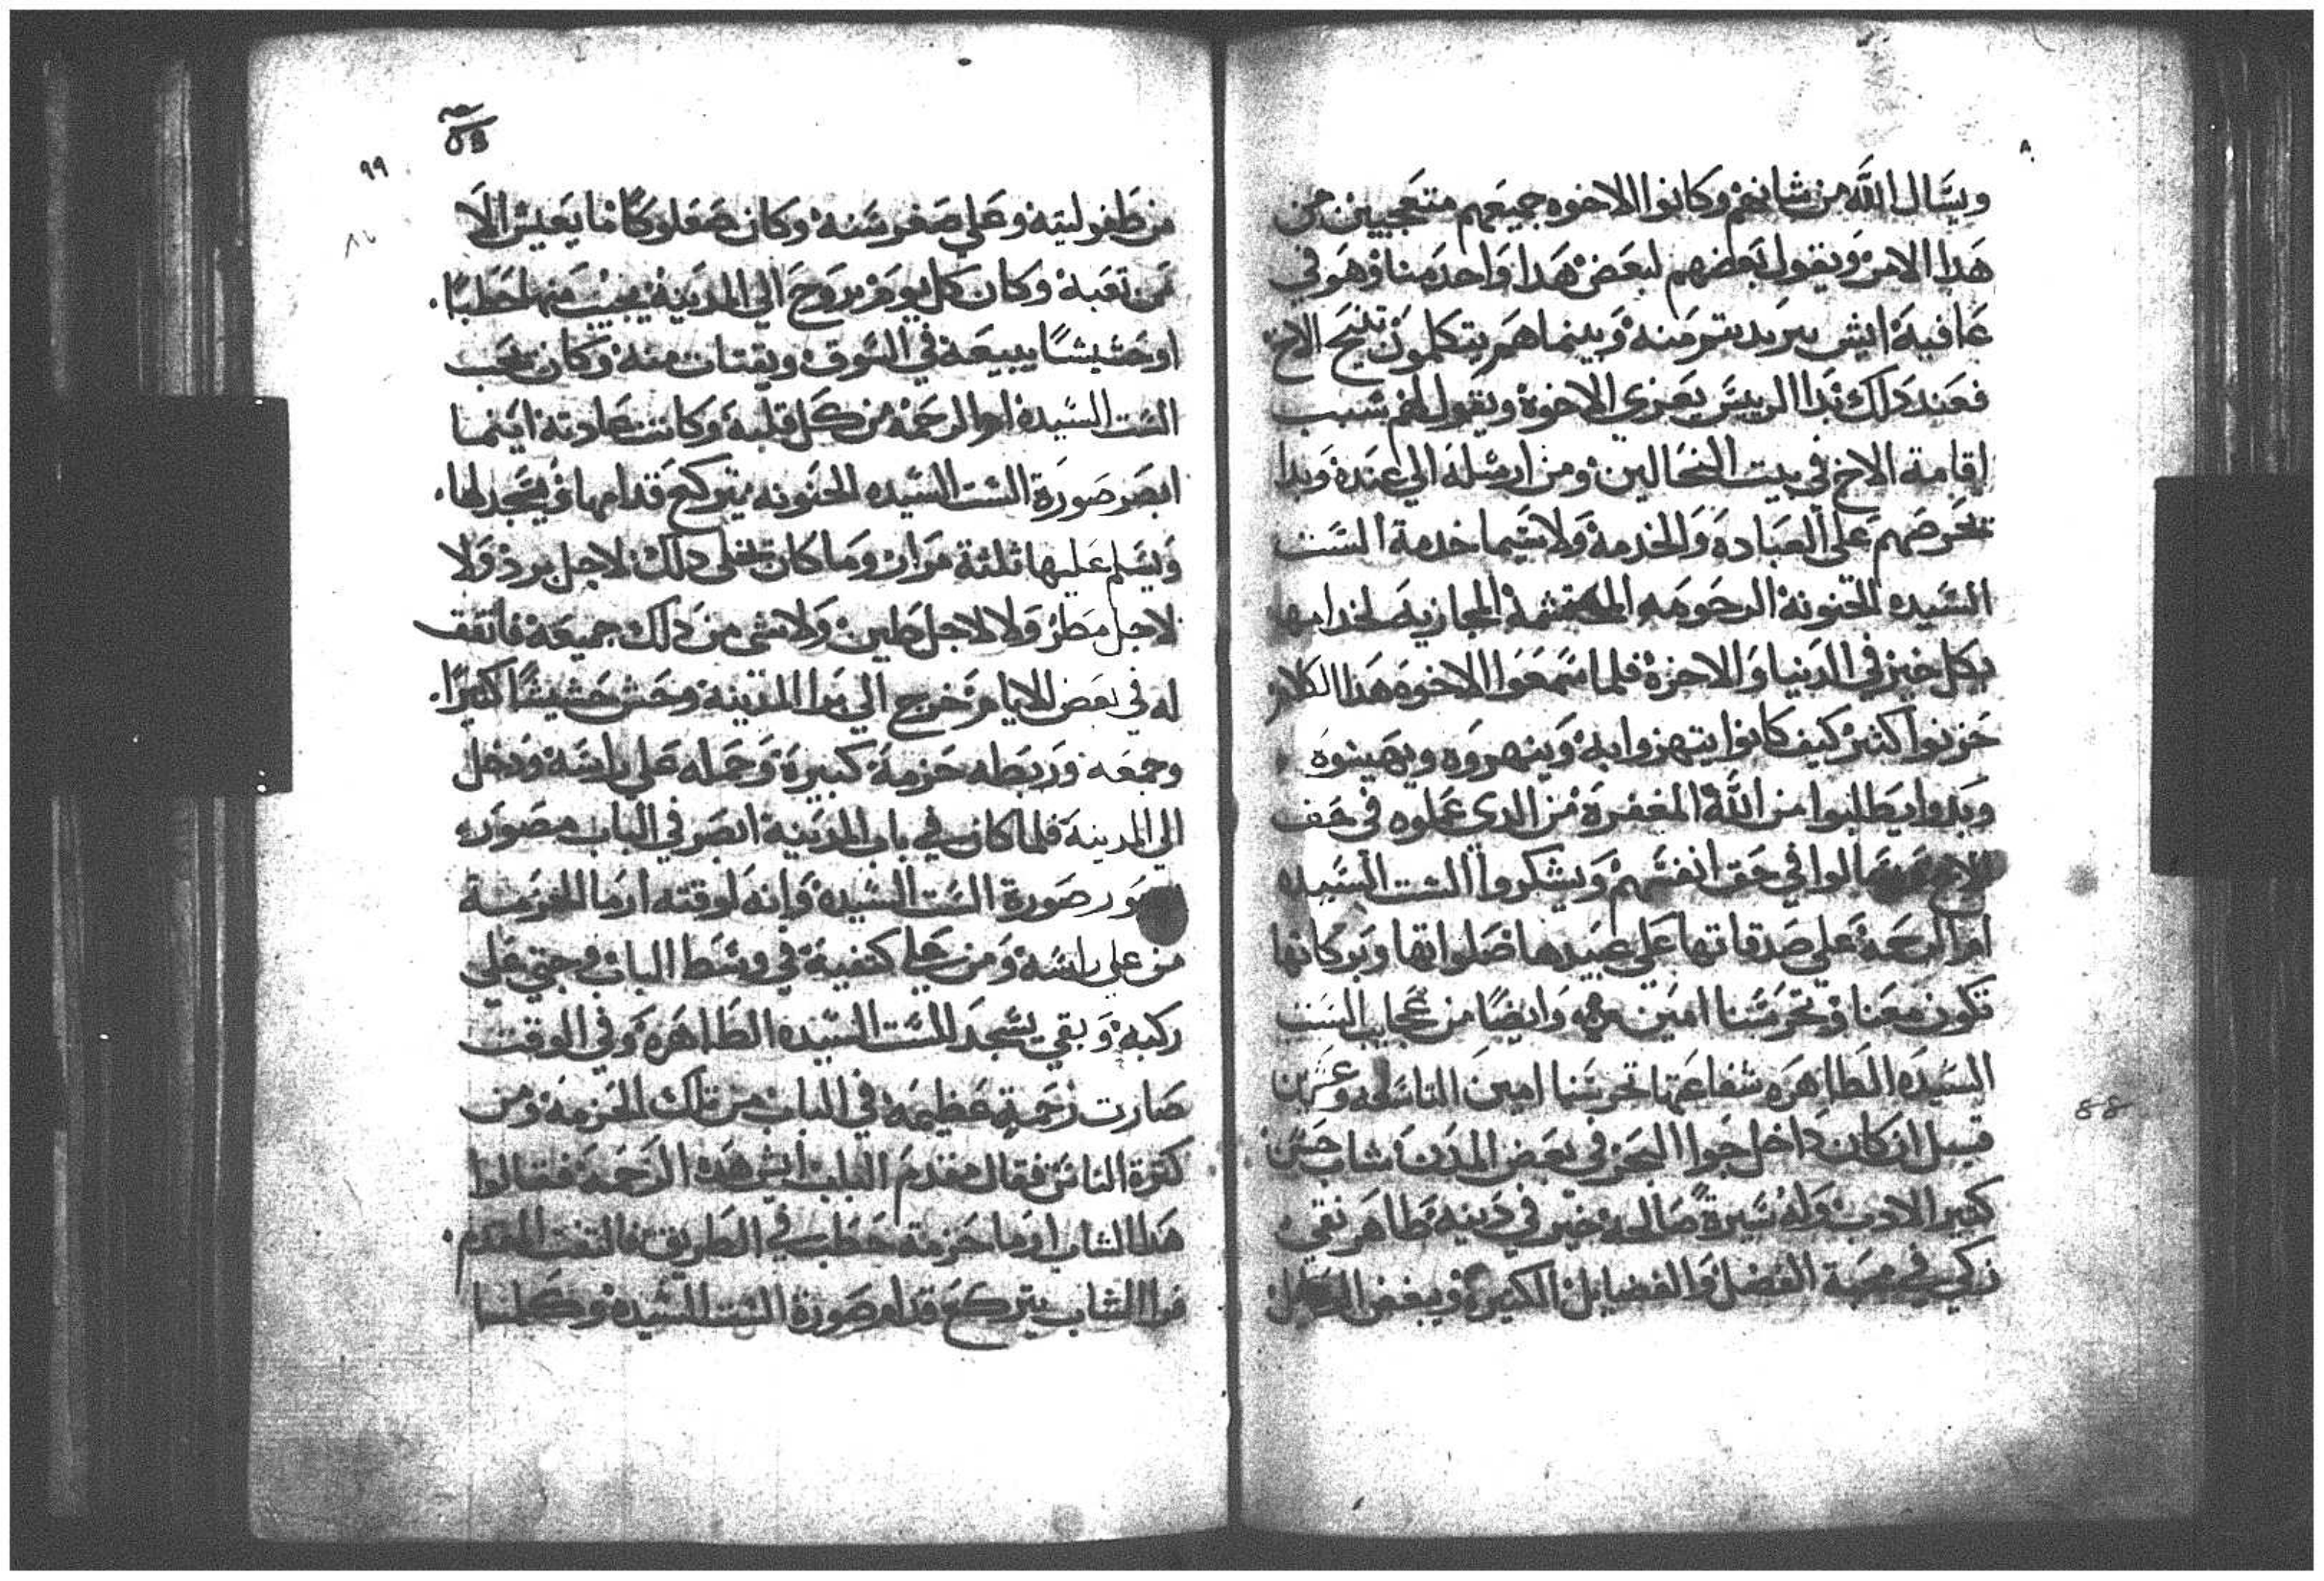 ويسال الله من شانهم وكانوا الاخوه جميعهم متعجبين من
هدا الامر ويقول بعضهم لبعض هدا واحد مننا وهو في
عافية ايش يريد يتم منه وبينما هم يتكلمون تنيح الاخ
فعند دلك بدا الرييس يعزي الاخوة ويقول لهم سبب
اقامة الاخ في بيت النخالين ومن ارسله الي عنده وبدا
يحرضهم على العباده والخدمة ولا سيما خدمة الست
السيده الحنونة الرحومه المحتشمة المجازية لخدامها
بكل خير في الدنيا والاخرة فلما سمعوا الاخوه هدا الكلام
حزنوا اكتر كيف كانوا يتهزوا به وينهروه ويهينوه
وبدوا يطلبوا من الله المغفرة من الدي عملوه في حق
الاخ وقالوا في حق انفسهم ويشكروا الست السيده
ام الرحمة علي صدقاتها علي عبيدها صلواتها وبركاتها
تكون معنا وتحرسنا امين وايضا من عجايب الست
السيده الطاهره شفاعتها تحرسنا امين التاسعه وعشرين
قيل ان كان داخل جوا البحر في بعض المدن شاب حسن
كتير الادب وله سيرة صالحة خير في دينه طاهر نقي
زكي في محبة الفضل والفضايل الكتيرة ويبغض الردايل
٩٩
من طفوليته وعلي صغر سنه وكان صعلوكا ما يعيش الا
من تعبة وكان كل يوم يروح الي المدينة يجيب منها حطبا
او حشيشا يبيعه في السوق ويقتات منه وكان يحب
الست السيده ام الرحمة من كل قلبه وكانت عادته اينما
ابصر صورة الست السيده الحنونه يتركع قدامها ويسجد لها
ويسلم عليها ثلثة مرار وما كان يخلي دلك لاجل برد ولا
لاجل مطر ولا لاجل طين ولا شي من دلك جميعه فاتفق
له في بعض الايام خرج الي برا المدينه وحش حشيشا كتيرا
وجمعه وربطه حزمة كبيرة وحمله علي راسه ودخل
الي المدينة فلما كان في باب المدينة ابصر في الباب مصور
صورة الست السيده وانه لوقته ارما الحزمة
من علي راسه ومن علي كتفية في وسط الباب وجتي على
ركبه وبقي يسجد للست السيده الطاهره وفي الوقت
صارت زحمة عظيمه في الباب من تلك الحزمه ومن
كترة الناس فقال مقدم الباب ايش هده الزحمة فقالوا
هدا الشاب ارما حزمة حطب في الطريق فالتفت المقدم
فرا الشاب يتركع قدام صورة الست السيده وكلما